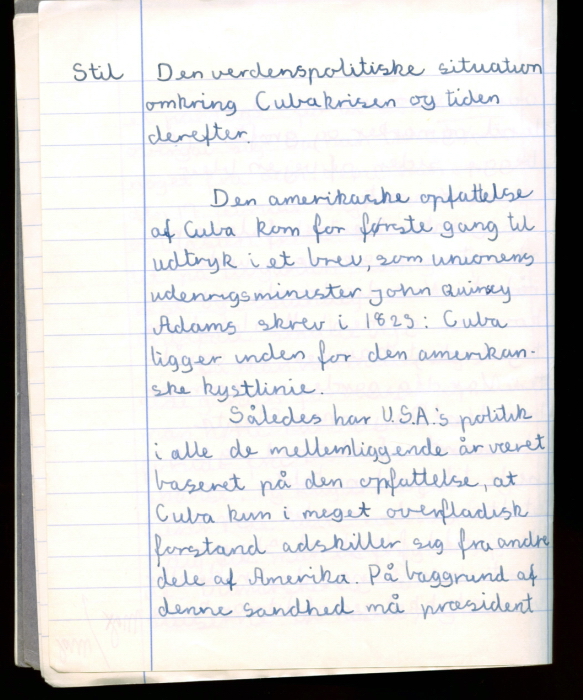 Stil Den verdenspolitiske situation
omkring Cubakrisen og tiden
derefter.
Den amerikanske opfattelse
af Cuba kom for første gang til
udtryk i et brev, som unionens
udenrigsminister John Quincy
Adams skrev i 1823: Cuba
ligger inden for den amerikan-
ske kystlinie.
Således har U.S.A.'s politik
i alle de mellemliggende år været
baseret på den opfattelse, at
Cuba kun i meget overfladisk
forstand adskiller sig fra andre
dele af Amerika. På baggrund af
denne sandhed må præsident